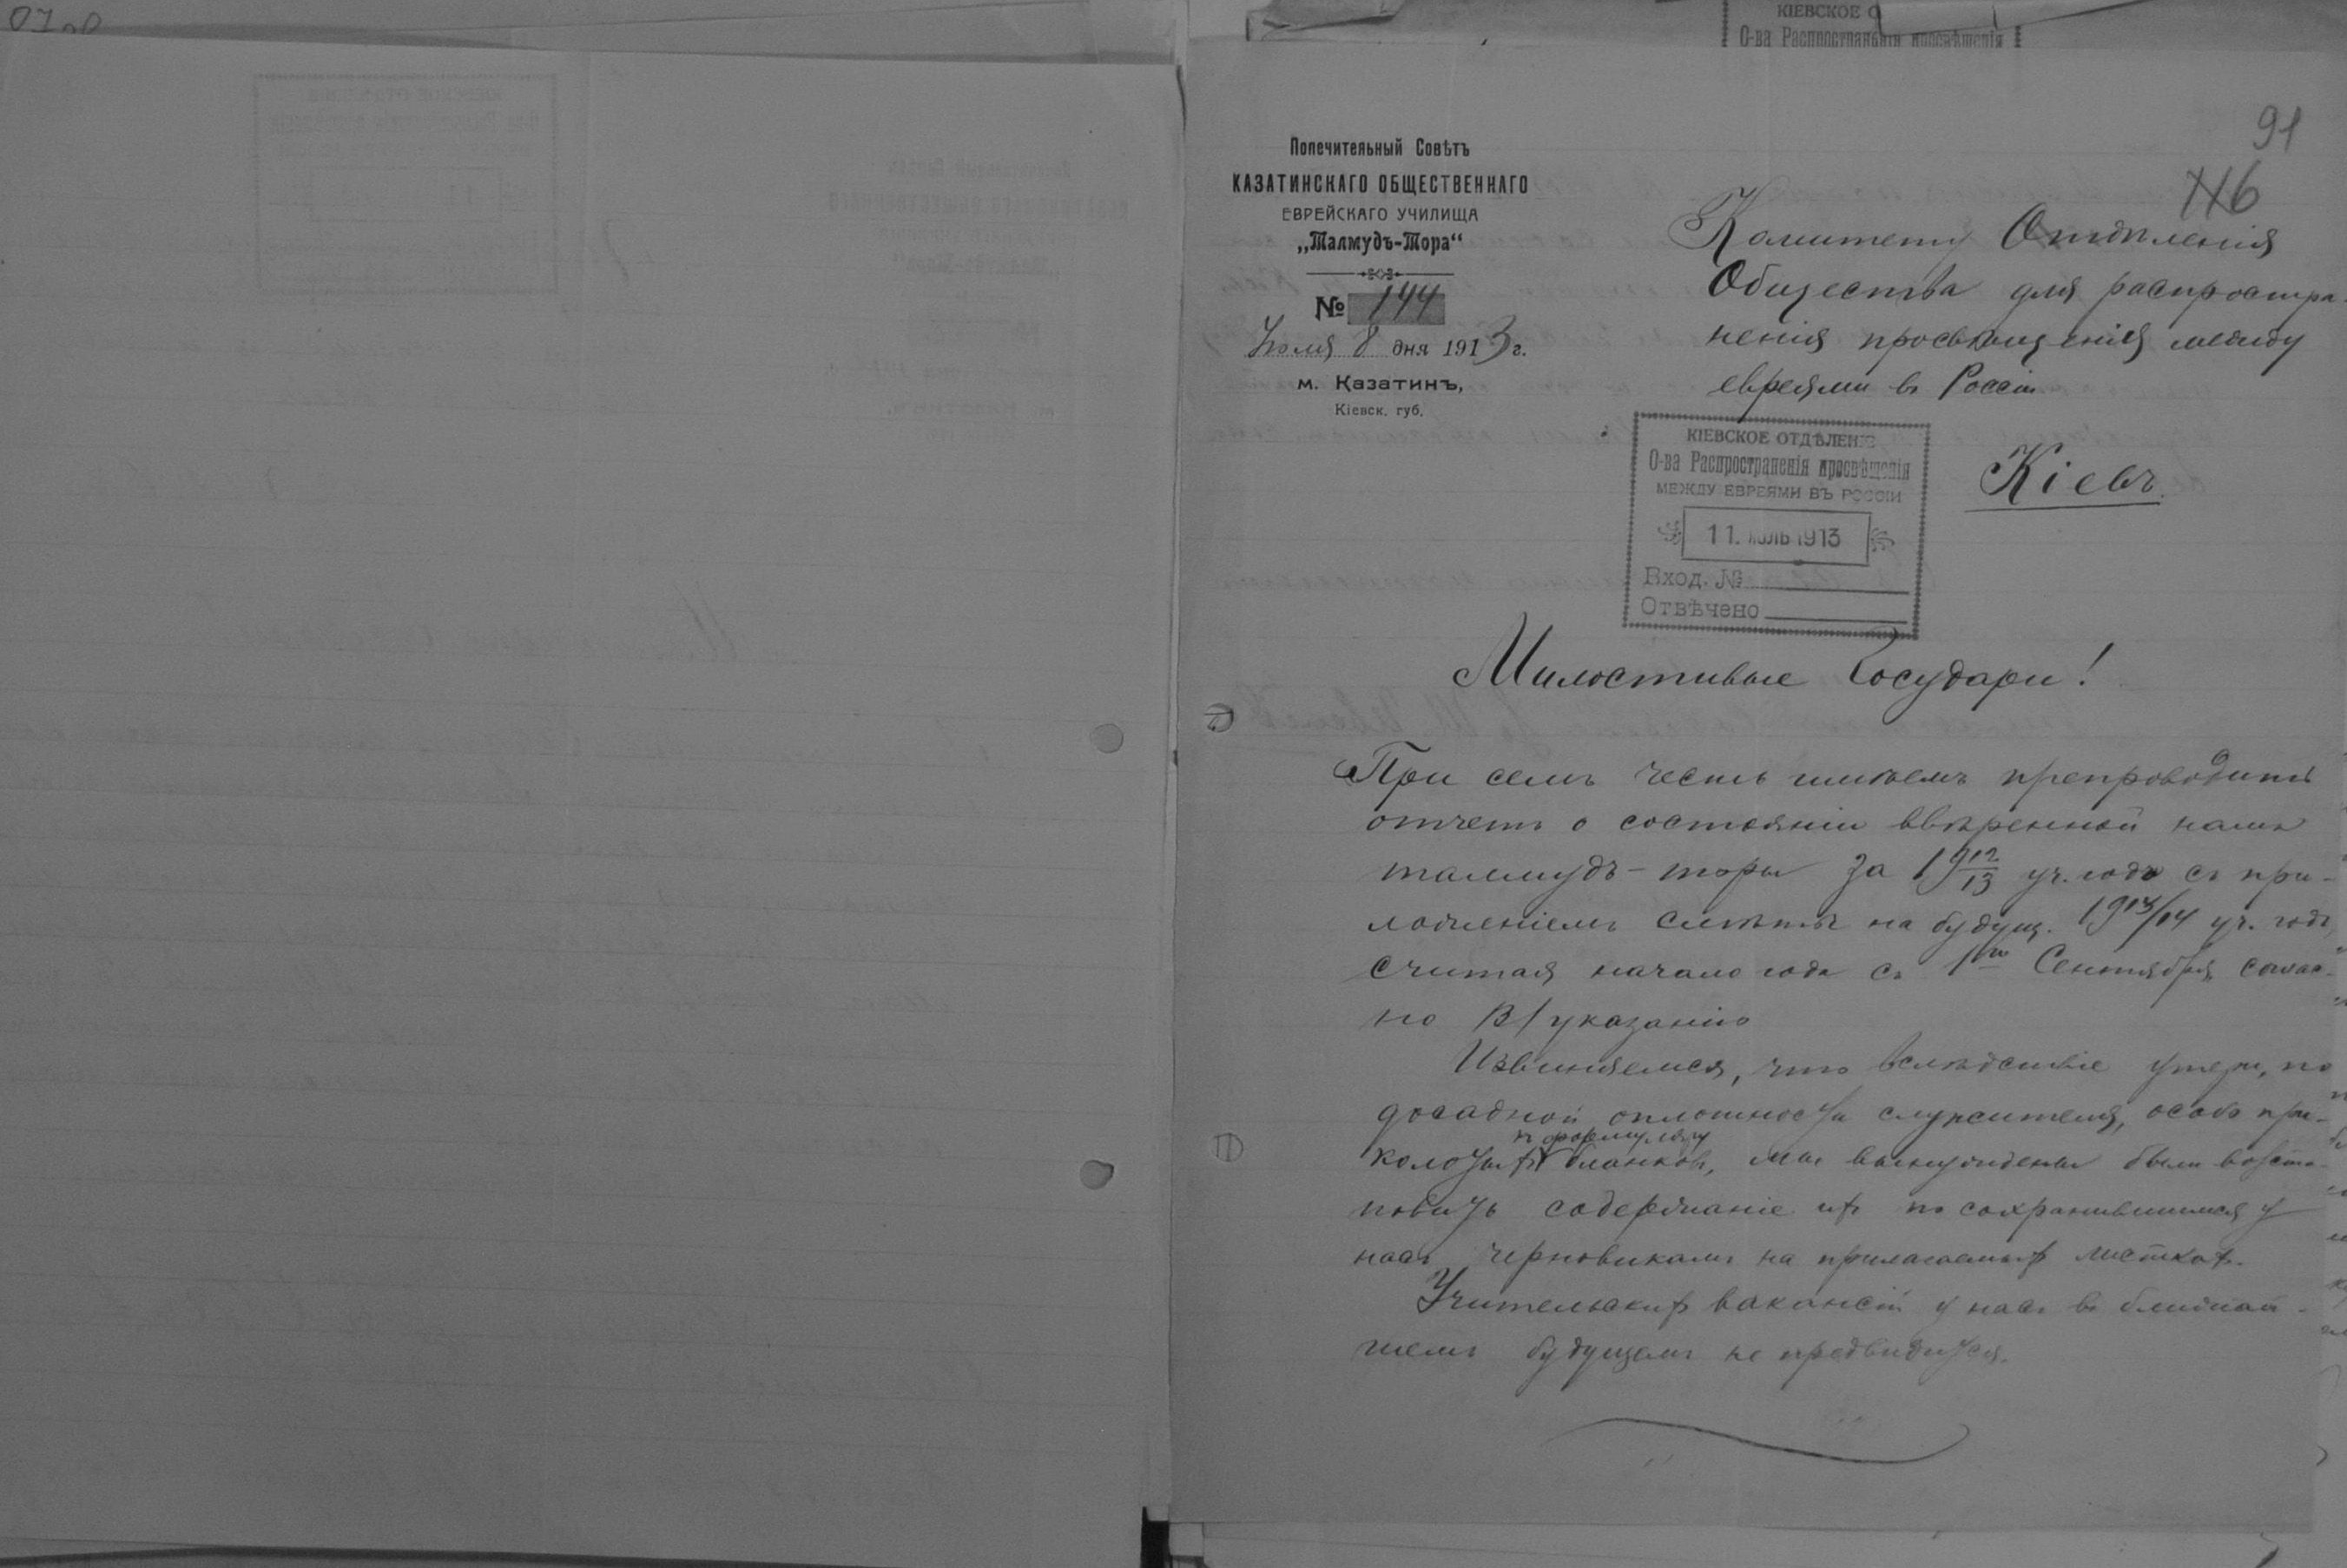 КІЕВСКОЕ О
О-ва Распространенія просвѣщенія
91
116
Попечительный Совѣтъ
КАЗАТИНСКАГО ОБЩЕСТВЕННАГО
ЕВРЕЙСКАГО УЧИЛИЩА
„Талмудъ-Тора“
№ 144
Іюля 8 дня 1913 г.
м. Казатинъ,
Кіевск. губ.
Комитету Отдѣленія
Общества для распростра-
ненія просвѣщенія между
евреями въ Россіи
Кіевъ.
КІЕВСКОЕ ОТДѢЛЕНІЕ
О-ва Распространенія просвѣщенія
МЕЖДУ ЕВРЕЯМИ ВЪ РОССІИ
11. ІЮЛЬ 1913
Вход. №
Отвѣчено
Милостивые Государи!
При семъ честь имѣемъ препроводить
отчетъ о состояніи ввѣренной намъ
талмудъ-торы за 1912/13 уч. годъ съ при-
ложеніемъ смѣты на будущ. 1913/14 уч. годъ,
считая начало года съ 1го Сентября, соглас-
но В/указанію
Извиняемся, что вслѣдствіе утери, по
досадной оплошности служителя, особо при-
колотыхъ къ формуляру бланковъ, мы вынуждены были возста-
новить содержаніе ихъ по сохранившимся у
насъ черновикамъ на прилагаемыхъ листкахъ.
Учительскихъ вакансій у насъ въ ближай-
шемъ будущемъ не предвидится.